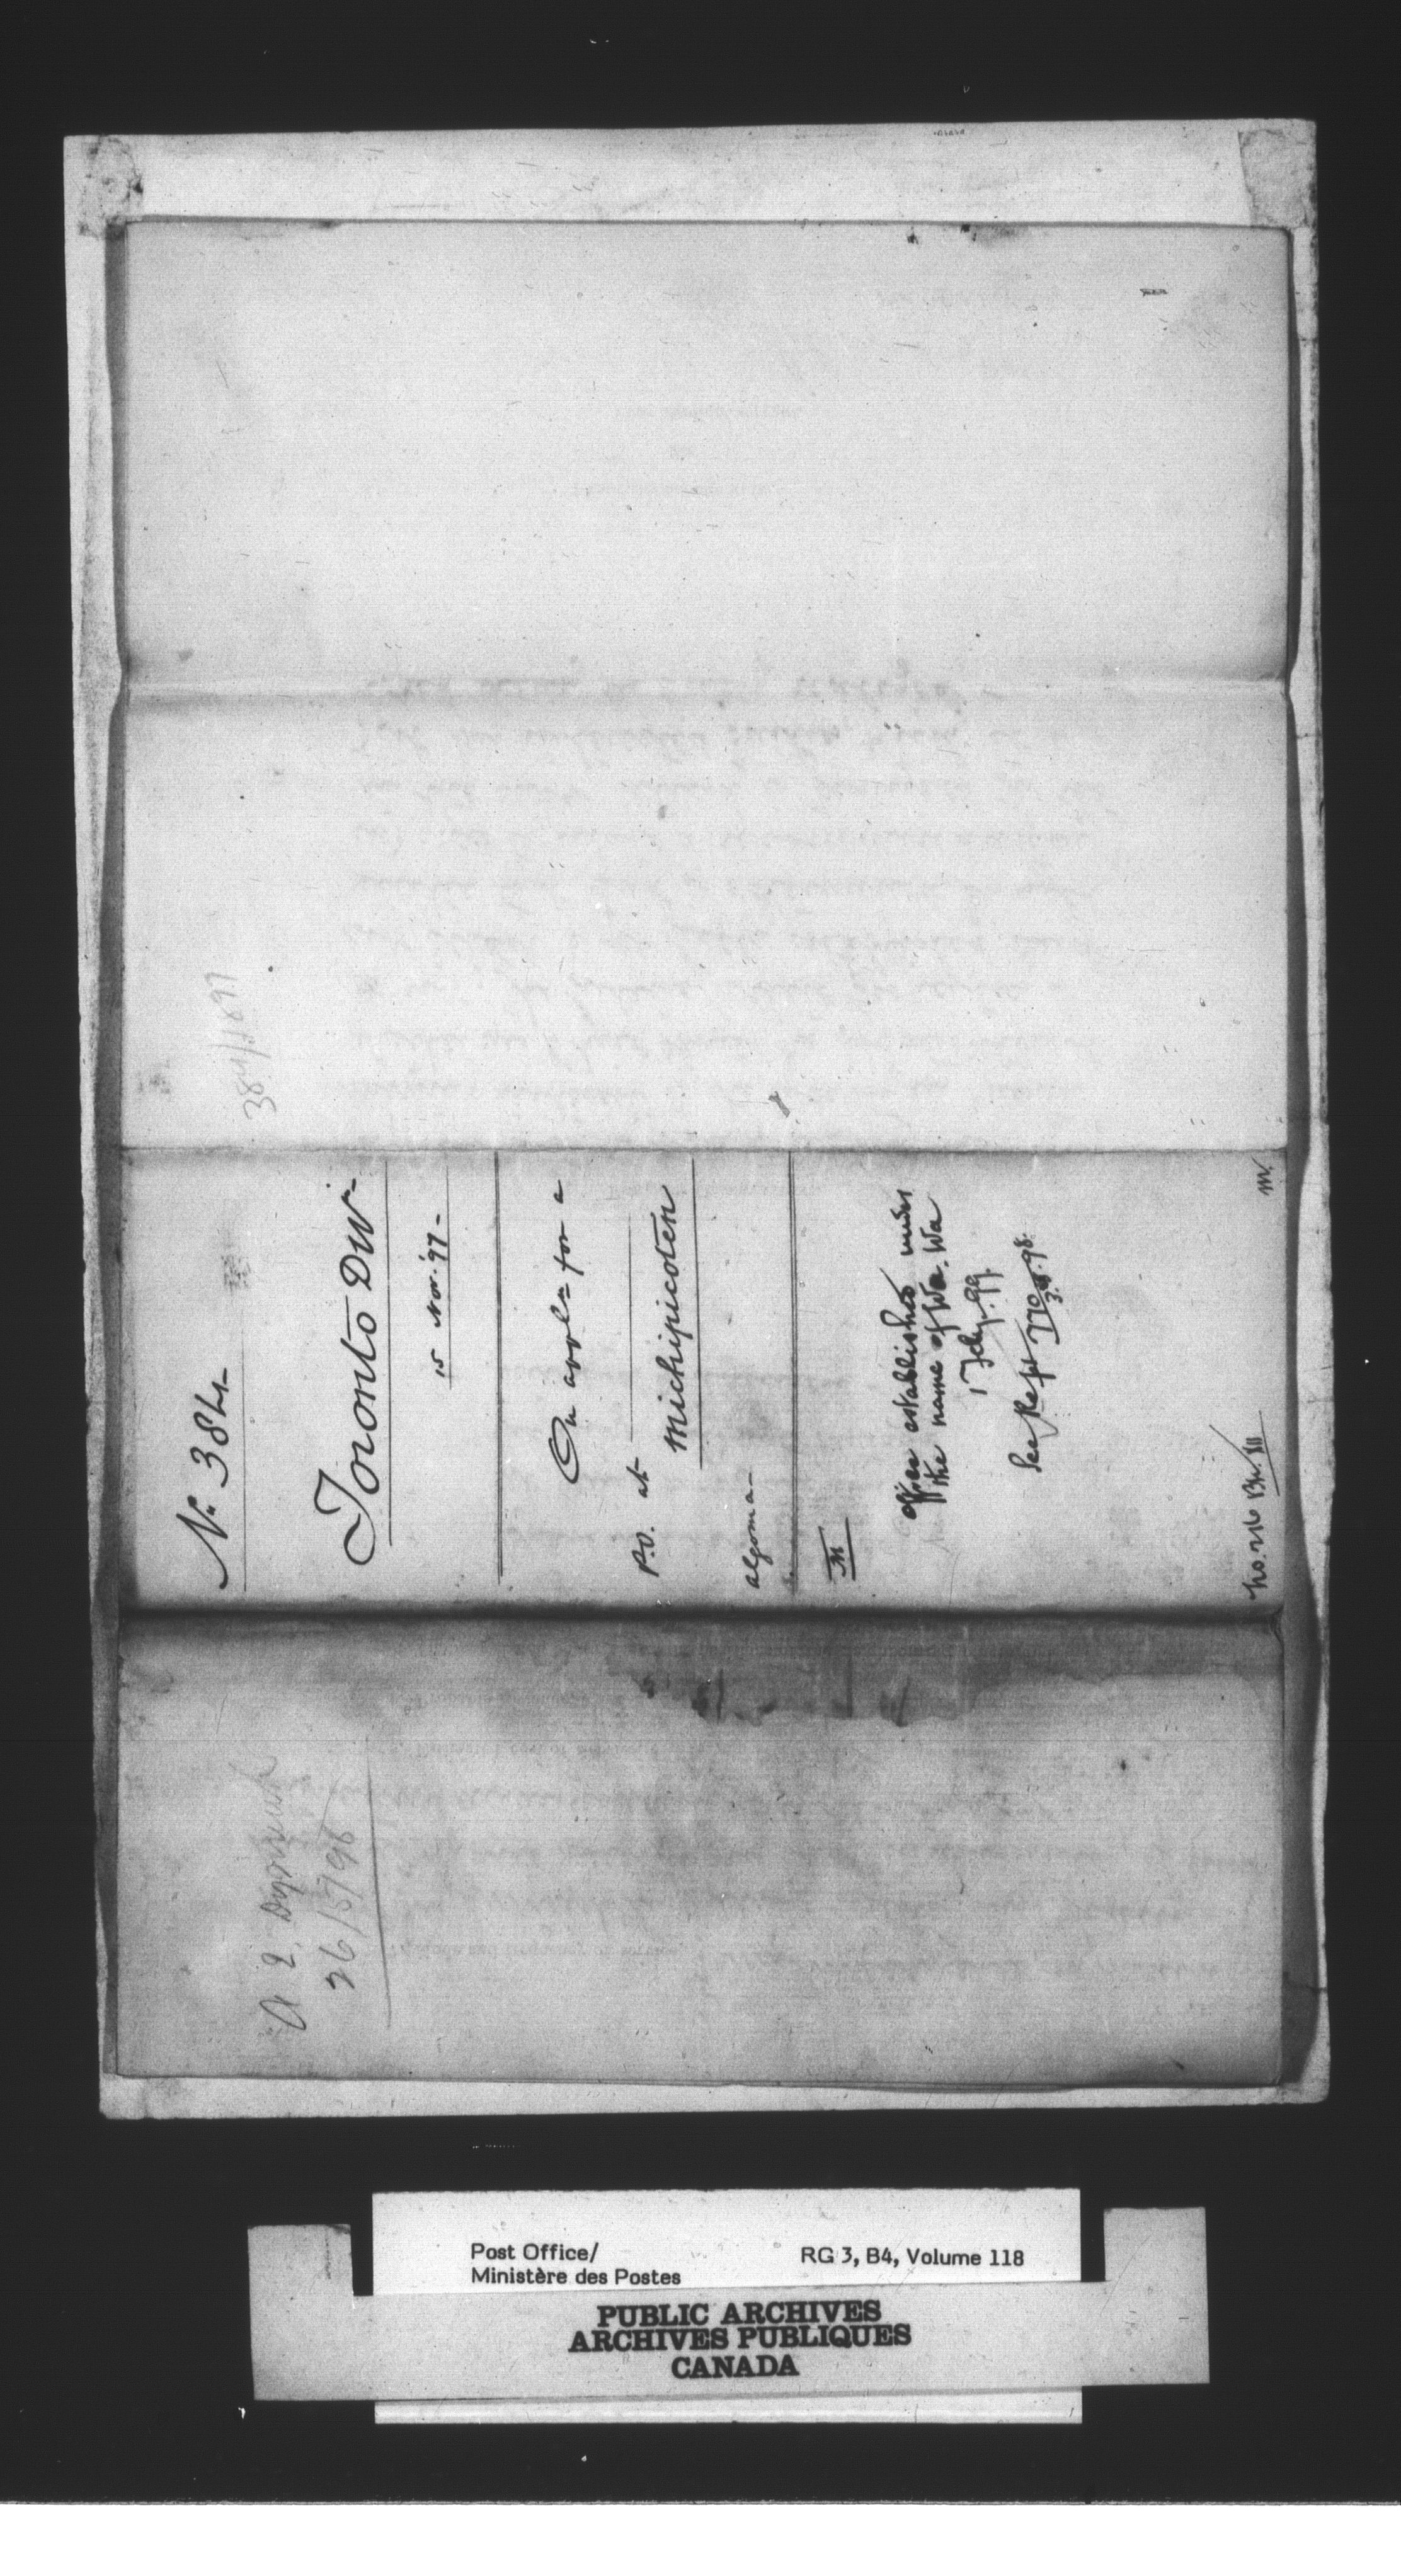 384/1897
No 384
Toronto Dn
15 Nov. '97
On appln for a
P.O. at
Michipicoten
Algoma
M
Office established under
the name of Wa Wa
1 Feby. 99.
See Rept 770
3. 98.
No. 216 Bk. III
M.
26/5/98
Post Office/
Ministère des Postes
RG 3, B4, Volume 118
PUBLIC ARCHIVES
ARCHIVES PUBLIQUES
CANADA